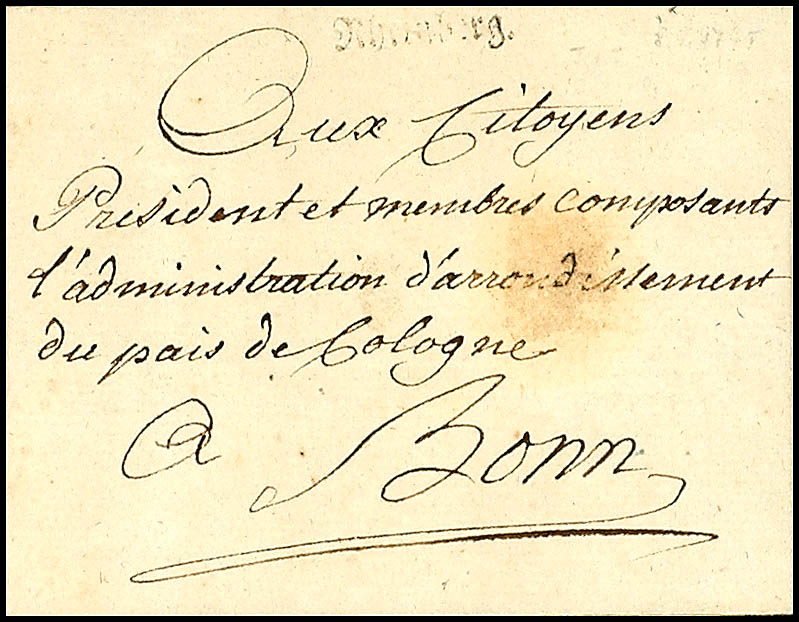 Rheinberg.
Aux Citoyens
President et membres composants
l'administration d'arrondissement
du pais de Cologne
a Bonn